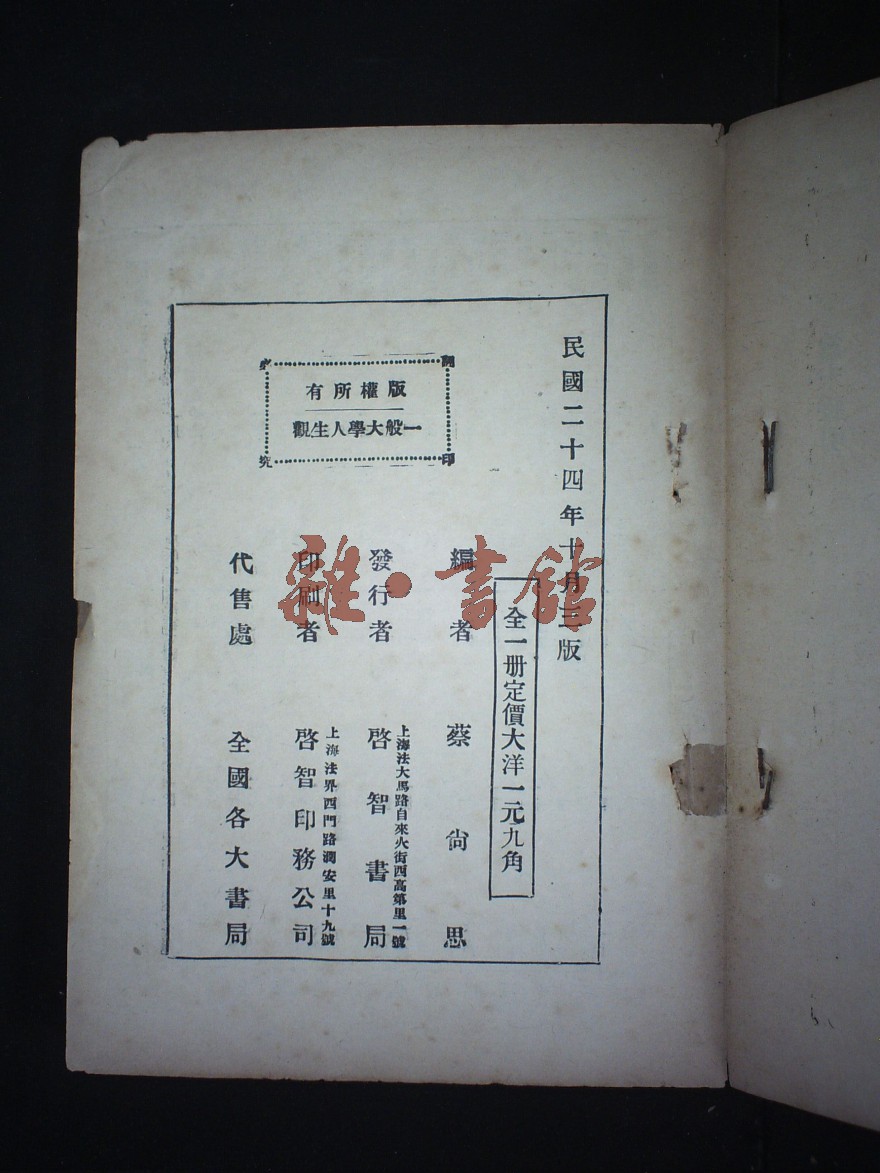 民國二十四年十月三版
全一册定價大洋一元九角
編者 蔡尙思
發行者 啓智書局
上海法大馬路自來火街西高第里一號
印刷者 啓智印務公司
上海法界西門路潤安里十九號
代售處 全國各大書局
版權所有
一般大學人生觀
翻印
必究
雜·書館